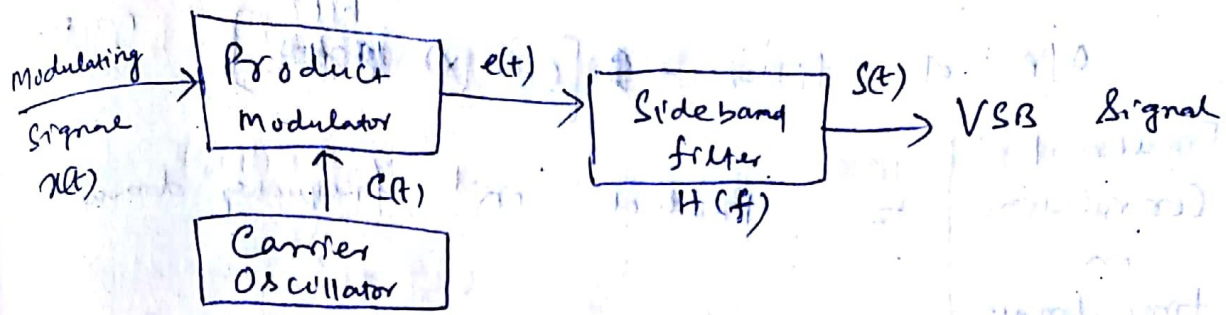 Modulating
Signal
x(t)
Product
Modulator
e(t)
Sideband
filter
H(f)
S(t)
VSB Signal
C(t)
Carrier
Oscillator